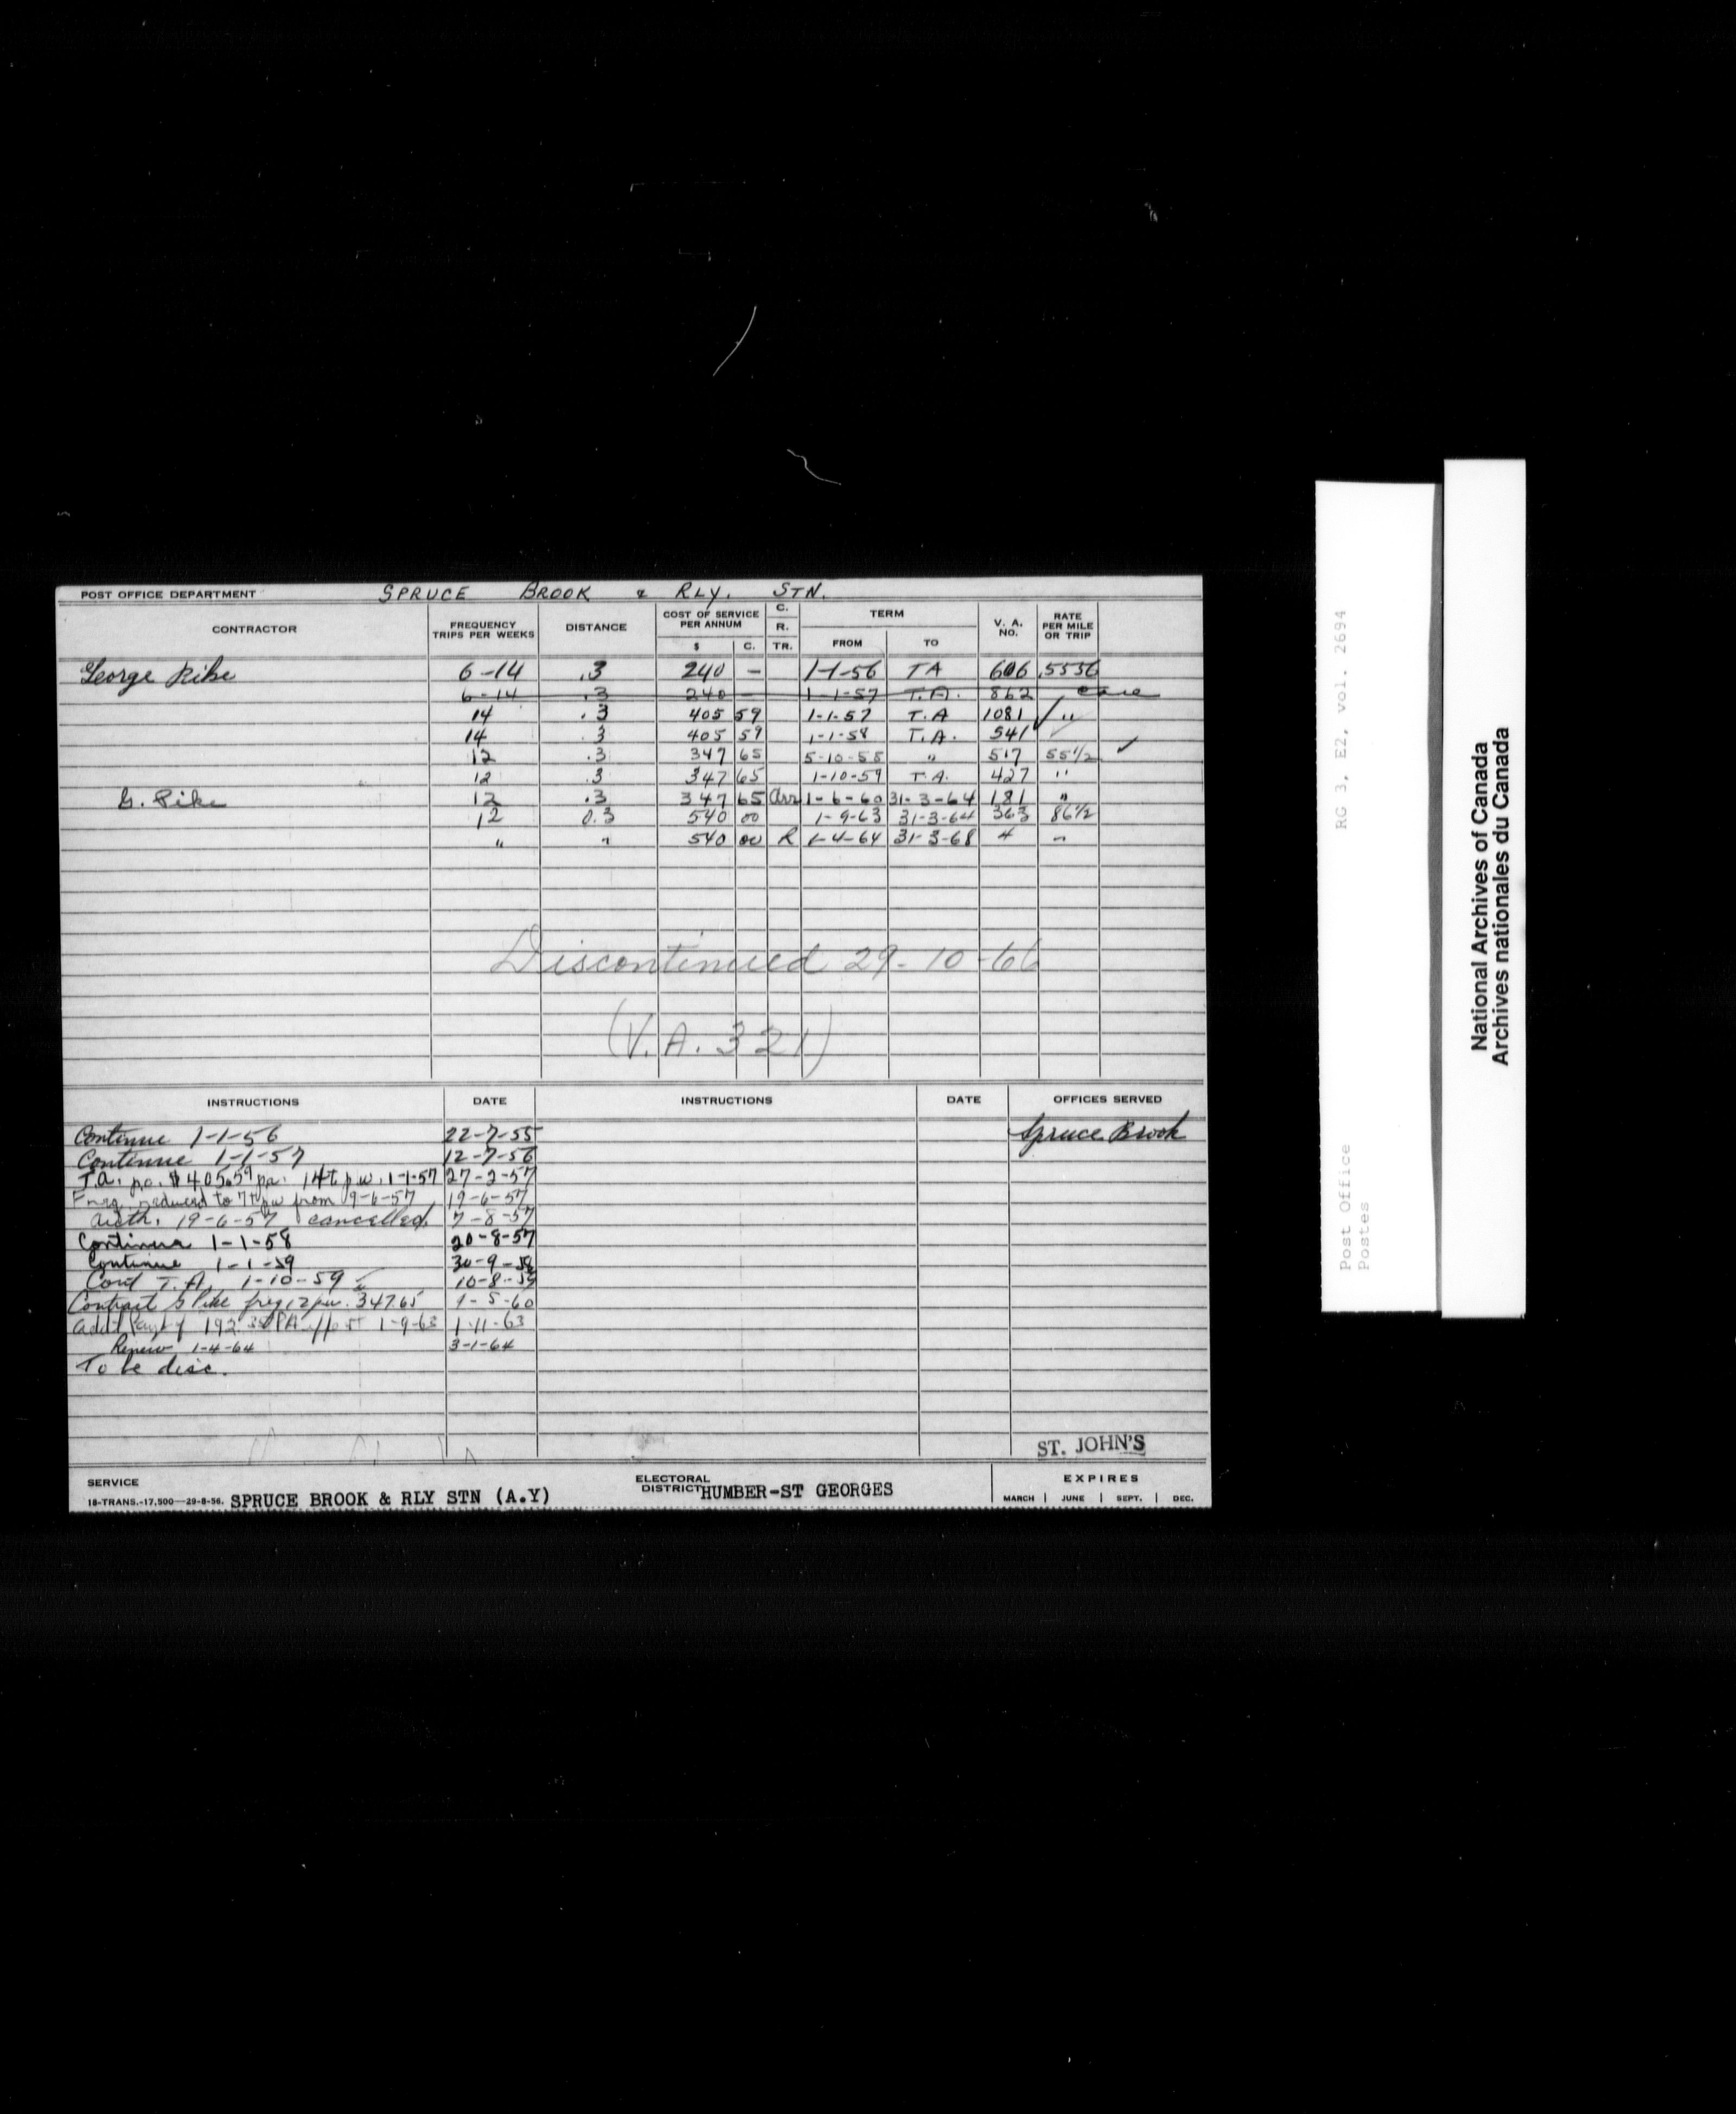 POST OFFICE DEPARTMENT SPRUCE BROOK & RLY. STN.
CONTRACTOR FREQUENCY TRIPS PER WEEKS DISTANCE COST OF SERVICE PER ANNUM $ C. C. R. TR. TERM FROM TO V. A. NO. RATE PER MILE OR TRIP
George Pike 6-14 .3 240 — 1-1-56 TA 606 .5556
6-14 .3 240 — 1-1-57 T.A. 862
14 .3 405 59 1-1-57 T.A 1081 "
14 .3 405 59 1-1-58 T.A. 541
12 .3 347 65 5-10-58 " 517 55½ ✓
12 .3 347 65 1-10-59 T.A. 427 "
G. Pike 12 .3 347 65 1-6-60 31-3-64 181 "
12 0.3 540 00 1-9-63 31-3-64 363 86½
" " 540 00 R 1-4-64 31-3-68 4 "
Discontinued 29-10-66
(V.A. 321)
INSTRUCTIONS DATE INSTRUCTIONS DATE OFFICES SERVED
Continue 1-1-56 22-7-55 Spruce Brook
Continue 1-1-57 12-7-56
T.A. po. $405.59 pa. 14t p.w. 1-1-57 27-2-57
Freq. reduced to 7t pw from 9-6-57 19-6-57
Auth. 19-6-57 cancelled. 7-8-57
Continue 1-1-58 20-8-57
Continue 1-1-59 30-9-58
Cont T.A. 1-10-59 10-8-59
Contract G Pike freq 12 pw. 347.65 9-5-60
Add'l 192.35 PA 1-9-63 1-11-63
Renew 1-4-64 3-1-64
To be disc.
ST. JOHN'S
SERVICE
18-TRANS.-17,500—29-8-56. SPRUCE BROOK & RLY STN (A.Y) ELECTORAL DISTRICT HUMBER-ST GEORGES EXPIRES
MARCH | JUNE | SEPT. | DEC.
RG 3, E2, vol. 2694
Post Office
Postes
National Archives of Canada
Archives nationales du Canada